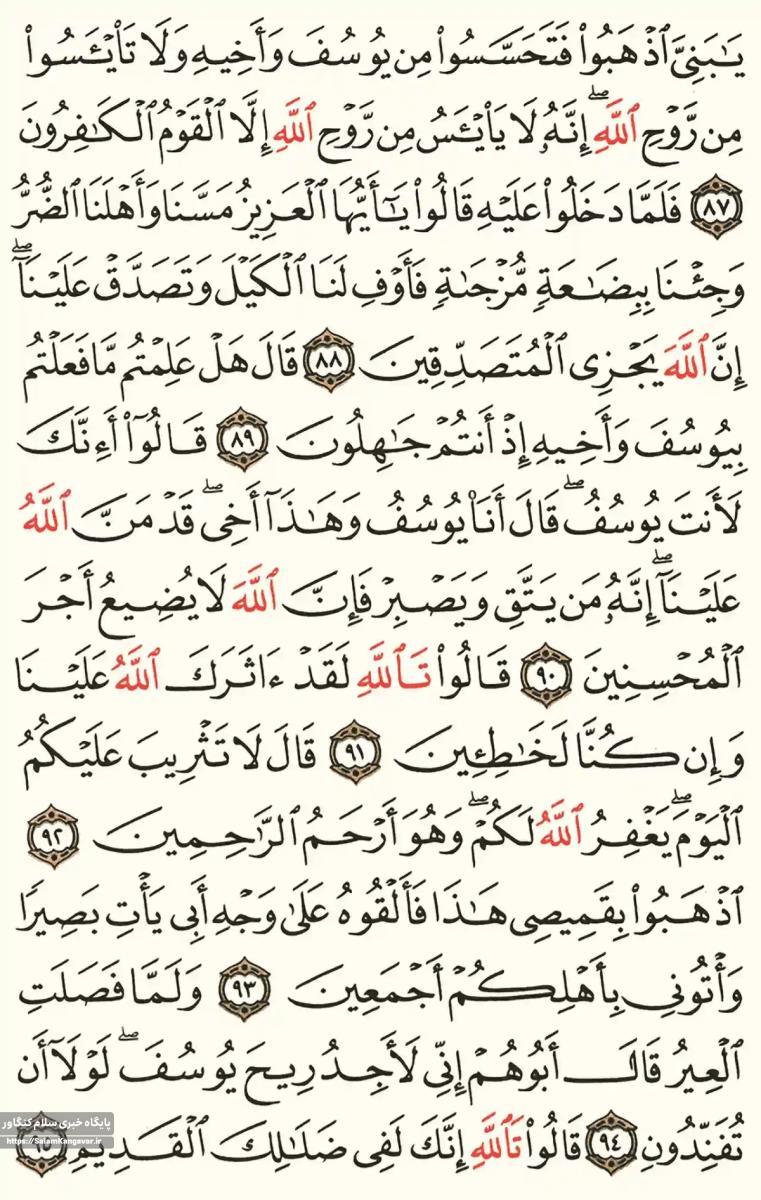 يَـٰبَنِىَّ ٱذْهَبُوا۟ فَتَحَسَّسُوا۟ مِن يُوسُفَ وَأَخِيهِ وَلَا تَا۟يْـَٔسُوا۟
مِن رَّوْحِ ٱللَّهِ ۖ إِنَّهُۥ لَا يَا۟يْـَٔسُ مِن رَّوْحِ ٱللَّهِ إِلَّا ٱلْقَوْمُ ٱلْكَـٰفِرُونَ
٨٧ فَلَمَّا دَخَلُوا۟ عَلَيْهِ قَالُوا۟ يَـٰٓأَيُّهَا ٱلْعَزِيزُ مَسَّنَا وَأَهْلَنَا ٱلضُّرُّ
وَجِئْنَا بِبِضَـٰعَةٍ مُّزْجَىٰةٍ فَأَوْفِ لَنَا ٱلْكَيْلَ وَتَصَدَّقْ عَلَيْنَآ ۖ
إِنَّ ٱللَّهَ يَجْزِى ٱلْمُتَصَدِّقِينَ ٨٨ قَالَ هَلْ عَلِمْتُم مَّا فَعَلْتُم
بِيُوسُفَ وَأَخِيهِ إِذْ أَنتُمْ جَـٰهِلُونَ ٨٩ قَالُوٓا۟ أَءِنَّكَ
لَأَنتَ يُوسُفُ ۖ قَالَ أَنَا۠ يُوسُفُ وَهَـٰذَآ أَخِى ۖ قَدْ مَنَّ ٱللَّهُ
عَلَيْنَآ ۖ إِنَّهُۥ مَن يَتَّقِ وَيَصْبِرْ فَإِنَّ ٱللَّهَ لَا يُضِيعُ أَجْرَ
ٱلْمُحْسِنِينَ ٩٠ قَالُوا۟ تَٱللَّهِ لَقَدْ ءَاثَرَكَ ٱللَّهُ عَلَيْنَا
وَإِن كُنَّا لَخَـٰطِـِٔينَ ٩١ قَالَ لَا تَثْرِيبَ عَلَيْكُمُ
ٱلْيَوْمَ ۖ يَغْفِرُ ٱللَّهُ لَكُمْ ۖ وَهُوَ أَرْحَمُ ٱلرَّٰحِمِينَ ٩٢
ٱذْهَبُوا۟ بِقَمِيصِى هَـٰذَا فَأَلْقُوهُ عَلَىٰ وَجْهِ أَبِى يَأْتِ بَصِيرًا
وَأْتُونِى بِأَهْلِكُمْ أَجْمَعِينَ ٩٣ وَلَمَّا فَصَلَتِ
ٱلْعِيرُ قَالَ أَبُوهُمْ إِنِّى لَأَجِدُ رِيحَ يُوسُفَ ۖ لَوْلَآ أَن
تُفَنِّدُونِ ٩٤ قَالُوا۟ تَٱللَّهِ إِنَّكَ لَفِى ضَلَـٰلِكَ ٱلْقَدِيمِ ٩٥
پایگاه خبری سلام کنگاور
https://SalamKangavar.ir